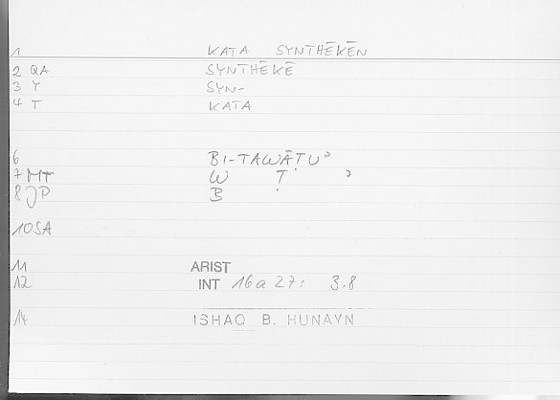 1 KATA SYNTHĒKĒN
2 QA SYNTHĒKĒ
3 Y SYN-
4 T KATA
6 BI-TAWĀṬUʾ
7 MT W Ṭ ʾ
8 JP B
10 SA
11 ARIST
12 INT 16a27: 3.8
14 ISHAQ B. HUNAYN